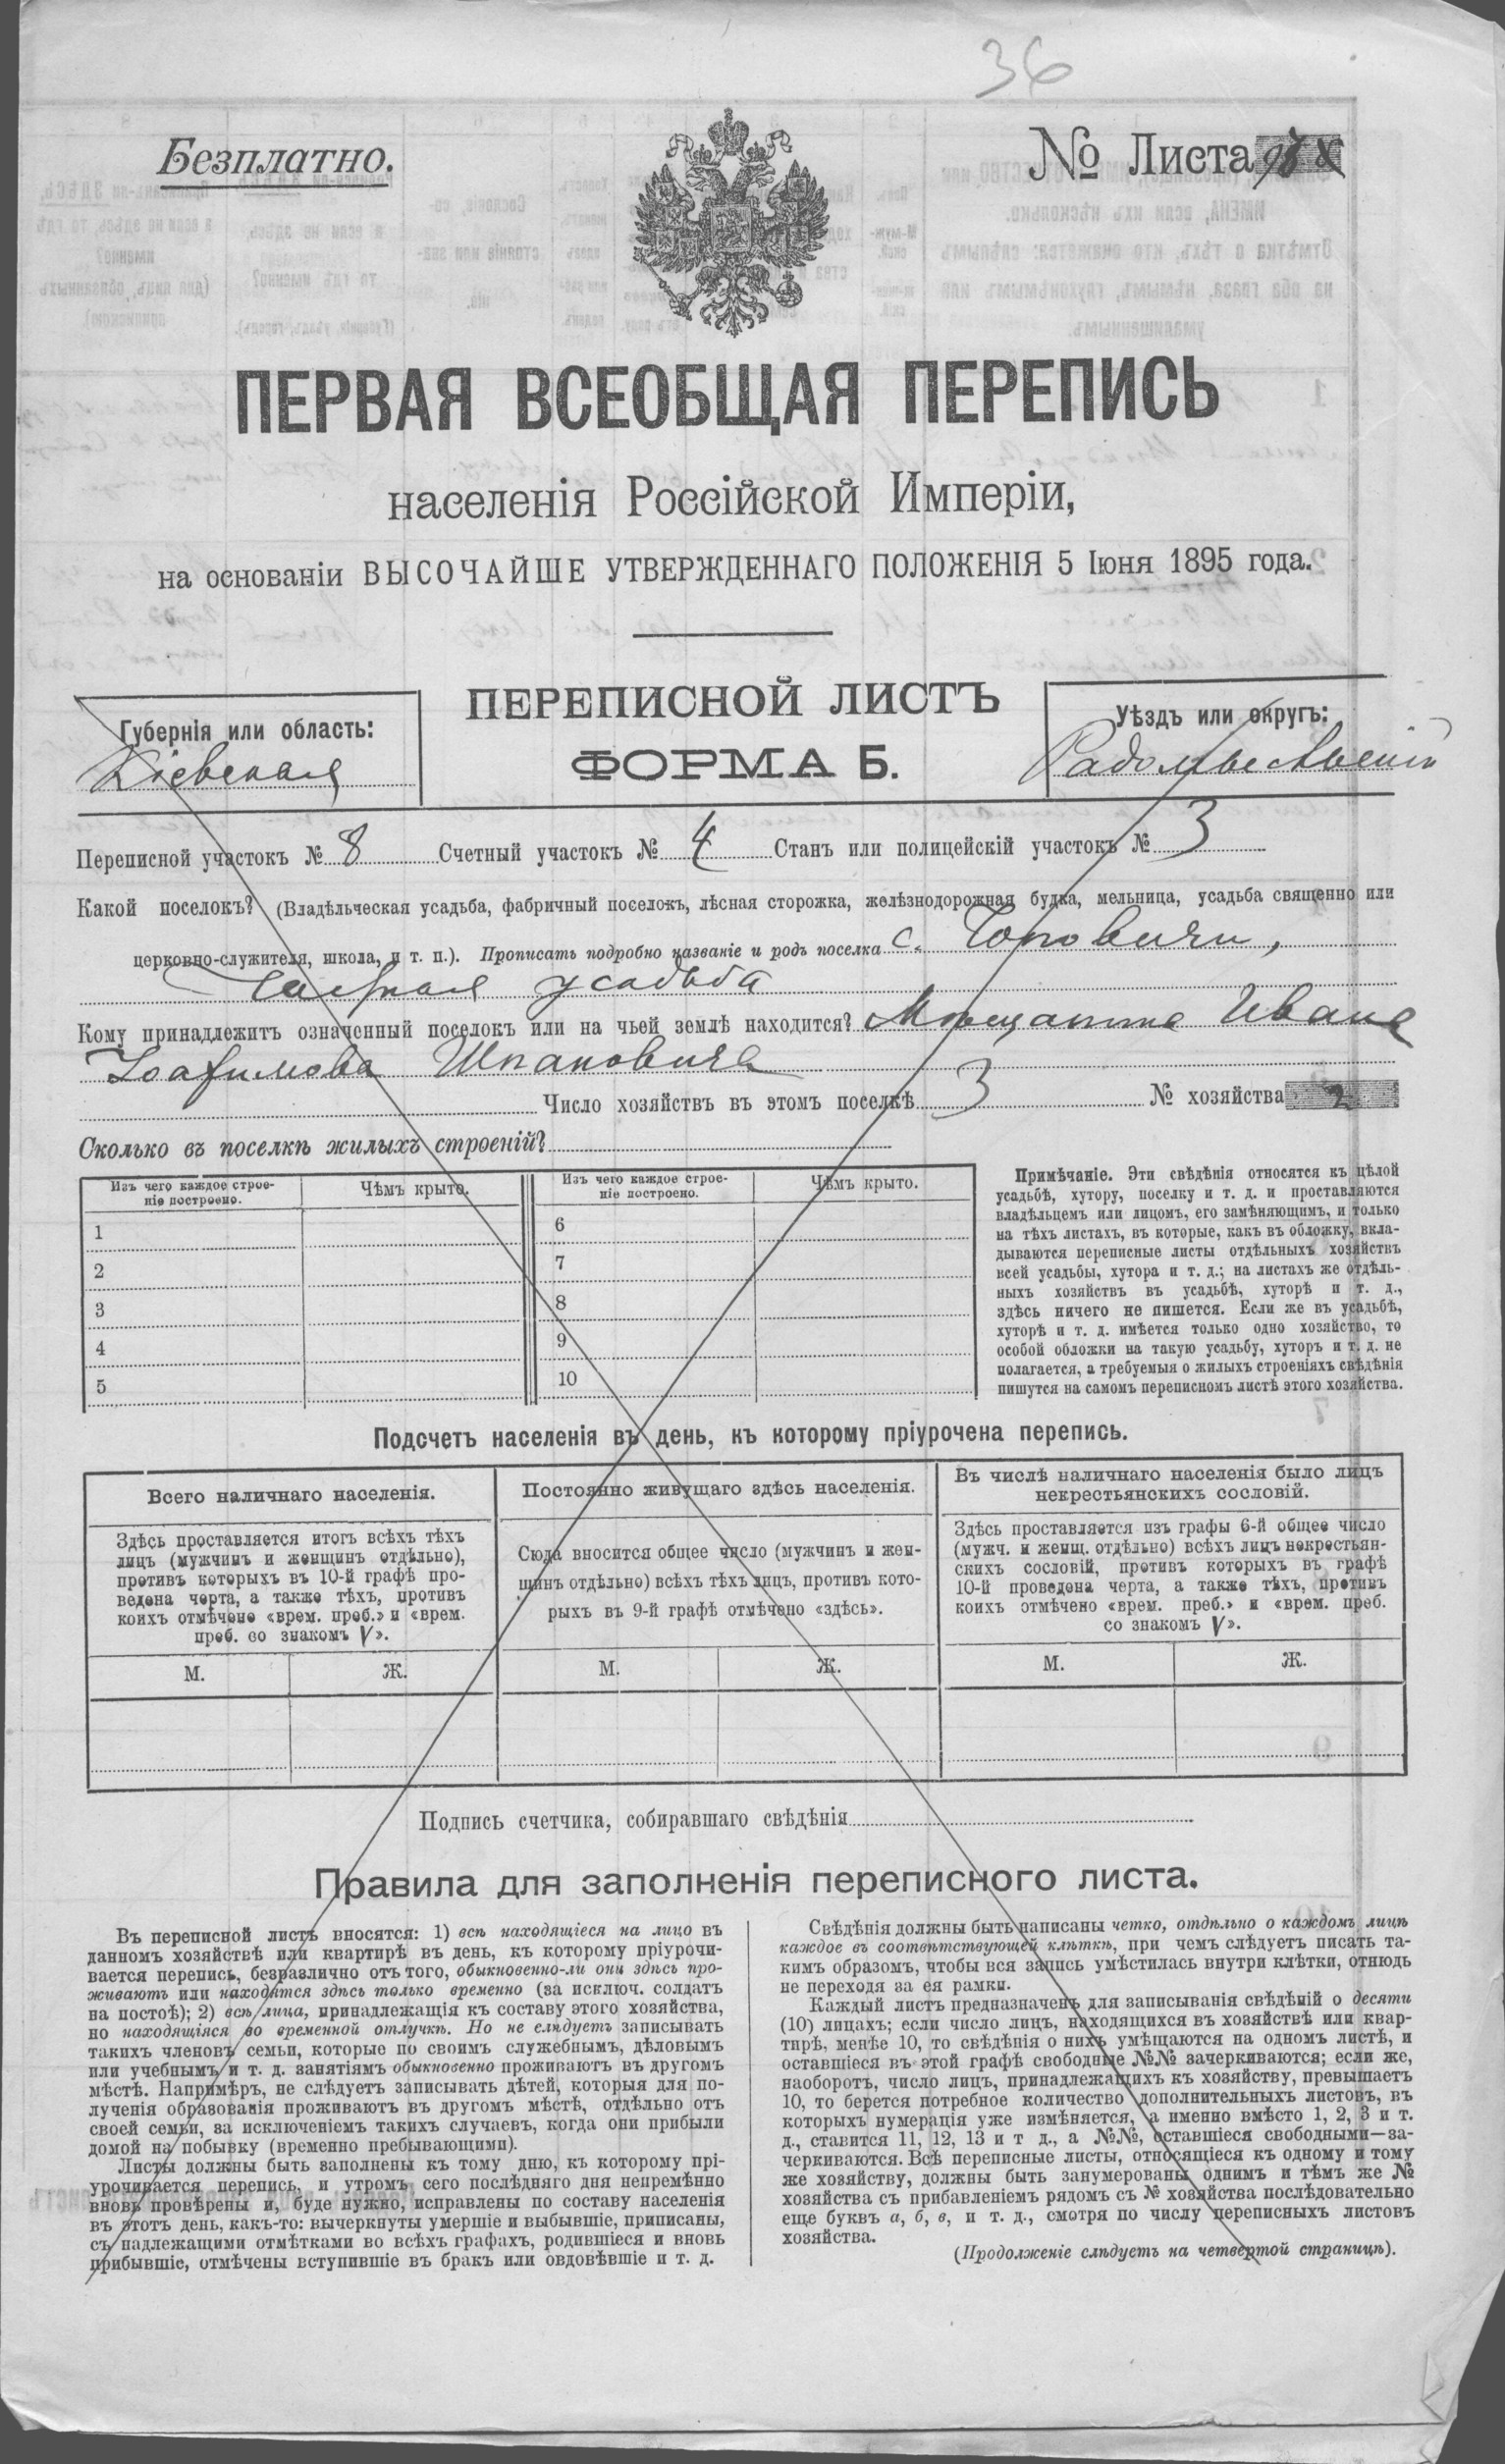 36
Безплатно.
№ Листа
ПЕРВАЯ ВСЕОБЩАЯ ПЕРЕПИСЬ
населенія Россійской Имперіи,
на основаніи ВЫСОЧАЙШЕ УТВЕРЖДЕННАГО ПОЛОЖЕНІЯ 5 Іюня 1895 года.
ПЕРЕПИСНОЙ ЛИСТЪ
ФОРМА Б.
Губернія или область:
Кіевская
Уѣздъ или округъ:
Радомысльскій
Переписной участокъ № 8 Счетный участокъ № 4 Станъ или полицейскій участокъ № 3
Какой поселокъ? (Владѣльческая усадьба, фабричный поселокъ, лѣсная сторожка, желѣзнодорожная будка, мельница, усадьба священно или
церковно-служителя, школа, и т. п.). Прописать подробно названіе и родъ поселка с. Чоповичи,
Частная усадьба
Кому принадлежитъ означенный поселокъ или на чьей землѣ находится? Мѣщанина Ивана
Шпаковича
Число хозяйствъ въ этомъ поселкѣ 3 № хозяйства 2
Сколько въ поселкѣ жилыхъ строеній?
Изъ чего каждое строе-
ніе построено.
Чѣмъ крыто.
Изъ чего каждое строе-
ніе построено.
Чѣмъ крыто.
1
2
3
4
5
6
7
8
9
10
Примѣчаніе. Эти свѣдѣнія относятся къ цѣлой
усадьбѣ, хутору, поселку и т. д. и проставляются
владѣльцемъ или лицомъ, его замѣняющимъ, и только
на тѣхъ листахъ, въ которые, какъ въ обложку, вкла-
дываются переписные листы отдѣльныхъ хозяйствъ
всей усадьбы, хутора и т. д.; на листахъ же отдѣль-
ныхъ хозяйствъ въ усадьбѣ, хуторѣ и т. д.,
здѣсь ничего не пишется. Если же въ усадьбѣ,
хуторѣ и т. д. имѣется только одно хозяйство, то
особой обложки на такую усадьбу, хуторъ и т. д. не
полагается, а требуемыя о жилыхъ строеніяхъ свѣдѣнія
пишутся на самомъ переписномъ листѣ этого хозяйства.
Подсчетъ населенія въ день, къ которому пріурочена перепись.
Всего наличнаго населенія.
Здѣсь проставляется итогъ всѣхъ тѣхъ
лицъ (мужчинъ и женщинъ отдѣльно),
противъ которыхъ въ 10-й графѣ про-
ведена черта, а также тѣхъ, противъ
коихъ отмѣчено «врем. преб.» и «врем.
преб. со знакомъ V».
М. Ж.
Постоянно живущаго здѣсь населенія.
Сюда вносится общее число (мужчинъ и жен-
щинъ отдѣльно) всѣхъ тѣхъ лицъ, противъ кото-
рыхъ въ 9-й графѣ отмѣчено «здѣсь».
М. Ж.
Въ числѣ наличнаго населенія было лицъ
некрестьянскихъ сословій.
Здѣсь проставляется изъ графы 6-й общее число
(мужч. и женщ. отдѣльно) всѣхъ лицъ некрестьян-
скихъ сословій, противъ которыхъ въ графѣ
10-й проведена черта, а также тѣхъ, противъ
коихъ отмѣчено «врем. преб.» и «врем. преб.
со знакомъ V».
М. Ж.
Подпись счетчика, собиравшаго свѣдѣнія
Правила для заполненія переписного листа.
Въ переписной листъ вносятся: 1) всѣ находящіеся на лицо въ
данномъ хозяйствѣ или квартирѣ въ день, къ которому пріурочи-
вается перепись, безразлично отъ того, обыкновенно-ли они здѣсь про-
живаютъ или находятся здѣсь только временно (за исключ. солдатъ
на постоѣ); 2) всѣ лица, принадлежащія къ составу этого хозяйства,
но находящіяся во временной отлучкѣ. Но не слѣдуетъ записывать
такихъ членовъ семьи, которые по своимъ служебнымъ, дѣловымъ
или учебнымъ и т. д. занятіямъ обыкновенно проживаютъ въ другомъ
мѣстѣ. Напримѣръ, не слѣдуетъ записывать дѣтей, которыя для по-
лученія образованія проживаютъ въ другомъ мѣстѣ, отдѣльно отъ
своей семьи, за исключеніемъ такихъ случаевъ, когда они прибыли
домой на побывку (временно пребывающими).
Листы должны быть заполнены къ тому дню, къ которому прі-
урочивается перепись, и утромъ сего послѣдняго дня непремѣнно
вновь провѣрены и, буде нужно, исправлены по составу населенія
въ этотъ день, какъ-то: вычеркнуты умершіе и выбывшіе, приписаны,
съ надлежащими отмѣтками во всѣхъ графахъ, родившіеся и вновь
прибывшіе, отмѣчены вступившіе въ бракъ или овдовѣвшіе и т. д.
Свѣдѣнія должны быть написаны четко, отдѣльно о каждомъ лицѣ
каждое въ соотвѣтствующей клѣткѣ, при чемъ слѣдуетъ писать та-
кимъ образомъ, чтобы вся запись умѣстилась внутри клѣтки, отнюдь
не переходя за ея рамки.
Каждый листъ предназначенъ для записыванія свѣдѣній о десяти
(10) лицахъ; если число лицъ, находящихся въ хозяйствѣ или квар-
тирѣ, менѣе 10, то свѣдѣнія о нихъ умѣщаются на одномъ листѣ, и
оставшіеся въ этой графѣ свободные №№ зачеркиваются; если же,
наоборотъ, число лицъ, принадлежащихъ къ хозяйству, превышаетъ
10, то берется потребное количество дополнительныхъ листовъ, въ
которыхъ нумерація уже измѣняется, а именно вмѣсто 1, 2, 3 и т.
д., ставится 11, 12, 13 и т д., а №№, оставшіеся свободными—за-
черкиваются. Всѣ переписные листы, относящіеся къ одному и тому
же хозяйству, должны быть занумерованы однимъ и тѣмъ же №
хозяйства съ прибавленіемъ рядомъ съ № хозяйства послѣдовательно
еще буквъ а, б, в, и т. д., смотря по числу переписныхъ листовъ
хозяйства.
(Продолженіе слѣдуетъ на четвертой страницѣ).